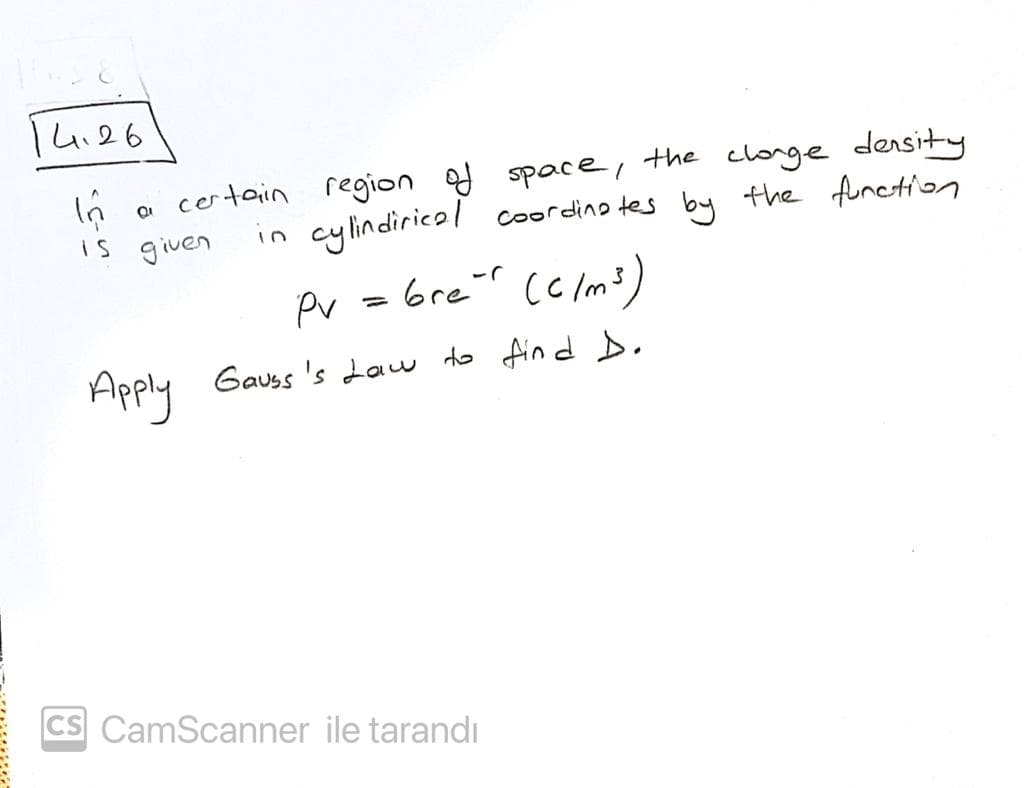 4.26
In a certain region of space, the charge density
is given in cylindirical coordinates by the function
ρv = 6re^-r (C/m³)
Apply Gauss's Law to find D.
CS CamScanner ile tarandı